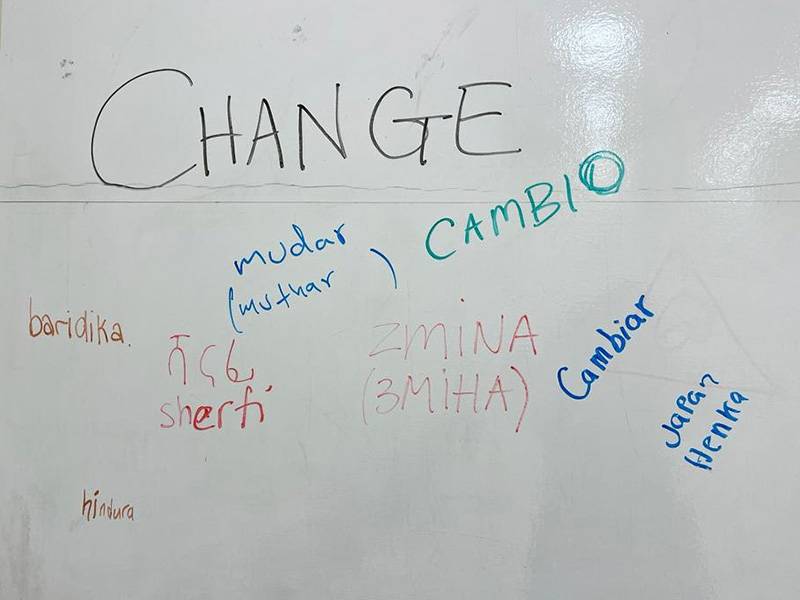 CHANGE
CAMBIO
mudar
(muthar)
baridika.
ሽርፊ
sherfi
ZMINA
(ЗМІНА)
Cambiar
Japan
Henka
hindura